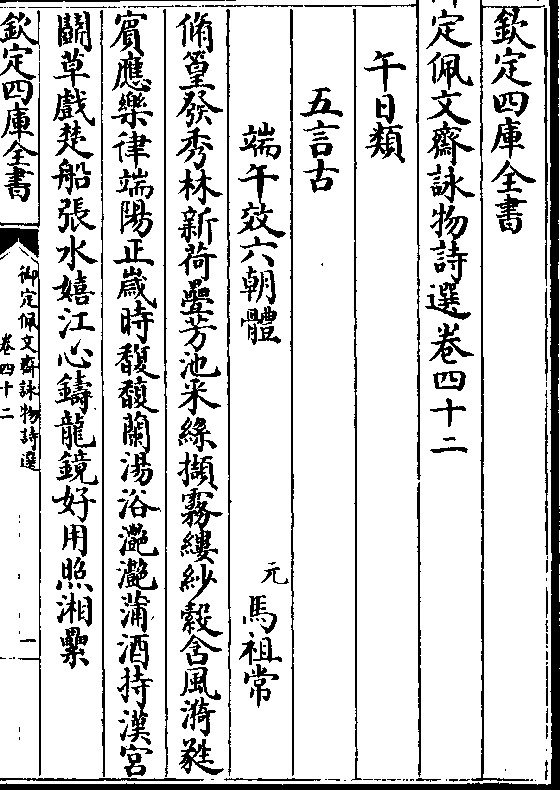 欽定四庫全書
御定佩文齋詠物詩選卷四十二
午日類
五言古
端午效六朝體　元　馬祖常
脩篁發秀林新荷疊芳池采絲擷霧縷紗縠含風漪蕤
賓應樂律端陽正歲時馥馥蘭湯浴灧灧蒲酒持漢宮
鬭草戲楚船張水嬉江心鑄龍鏡好用照湘纍
欽定四庫全書
御定佩文齋詠物詩選
卷四十二
一